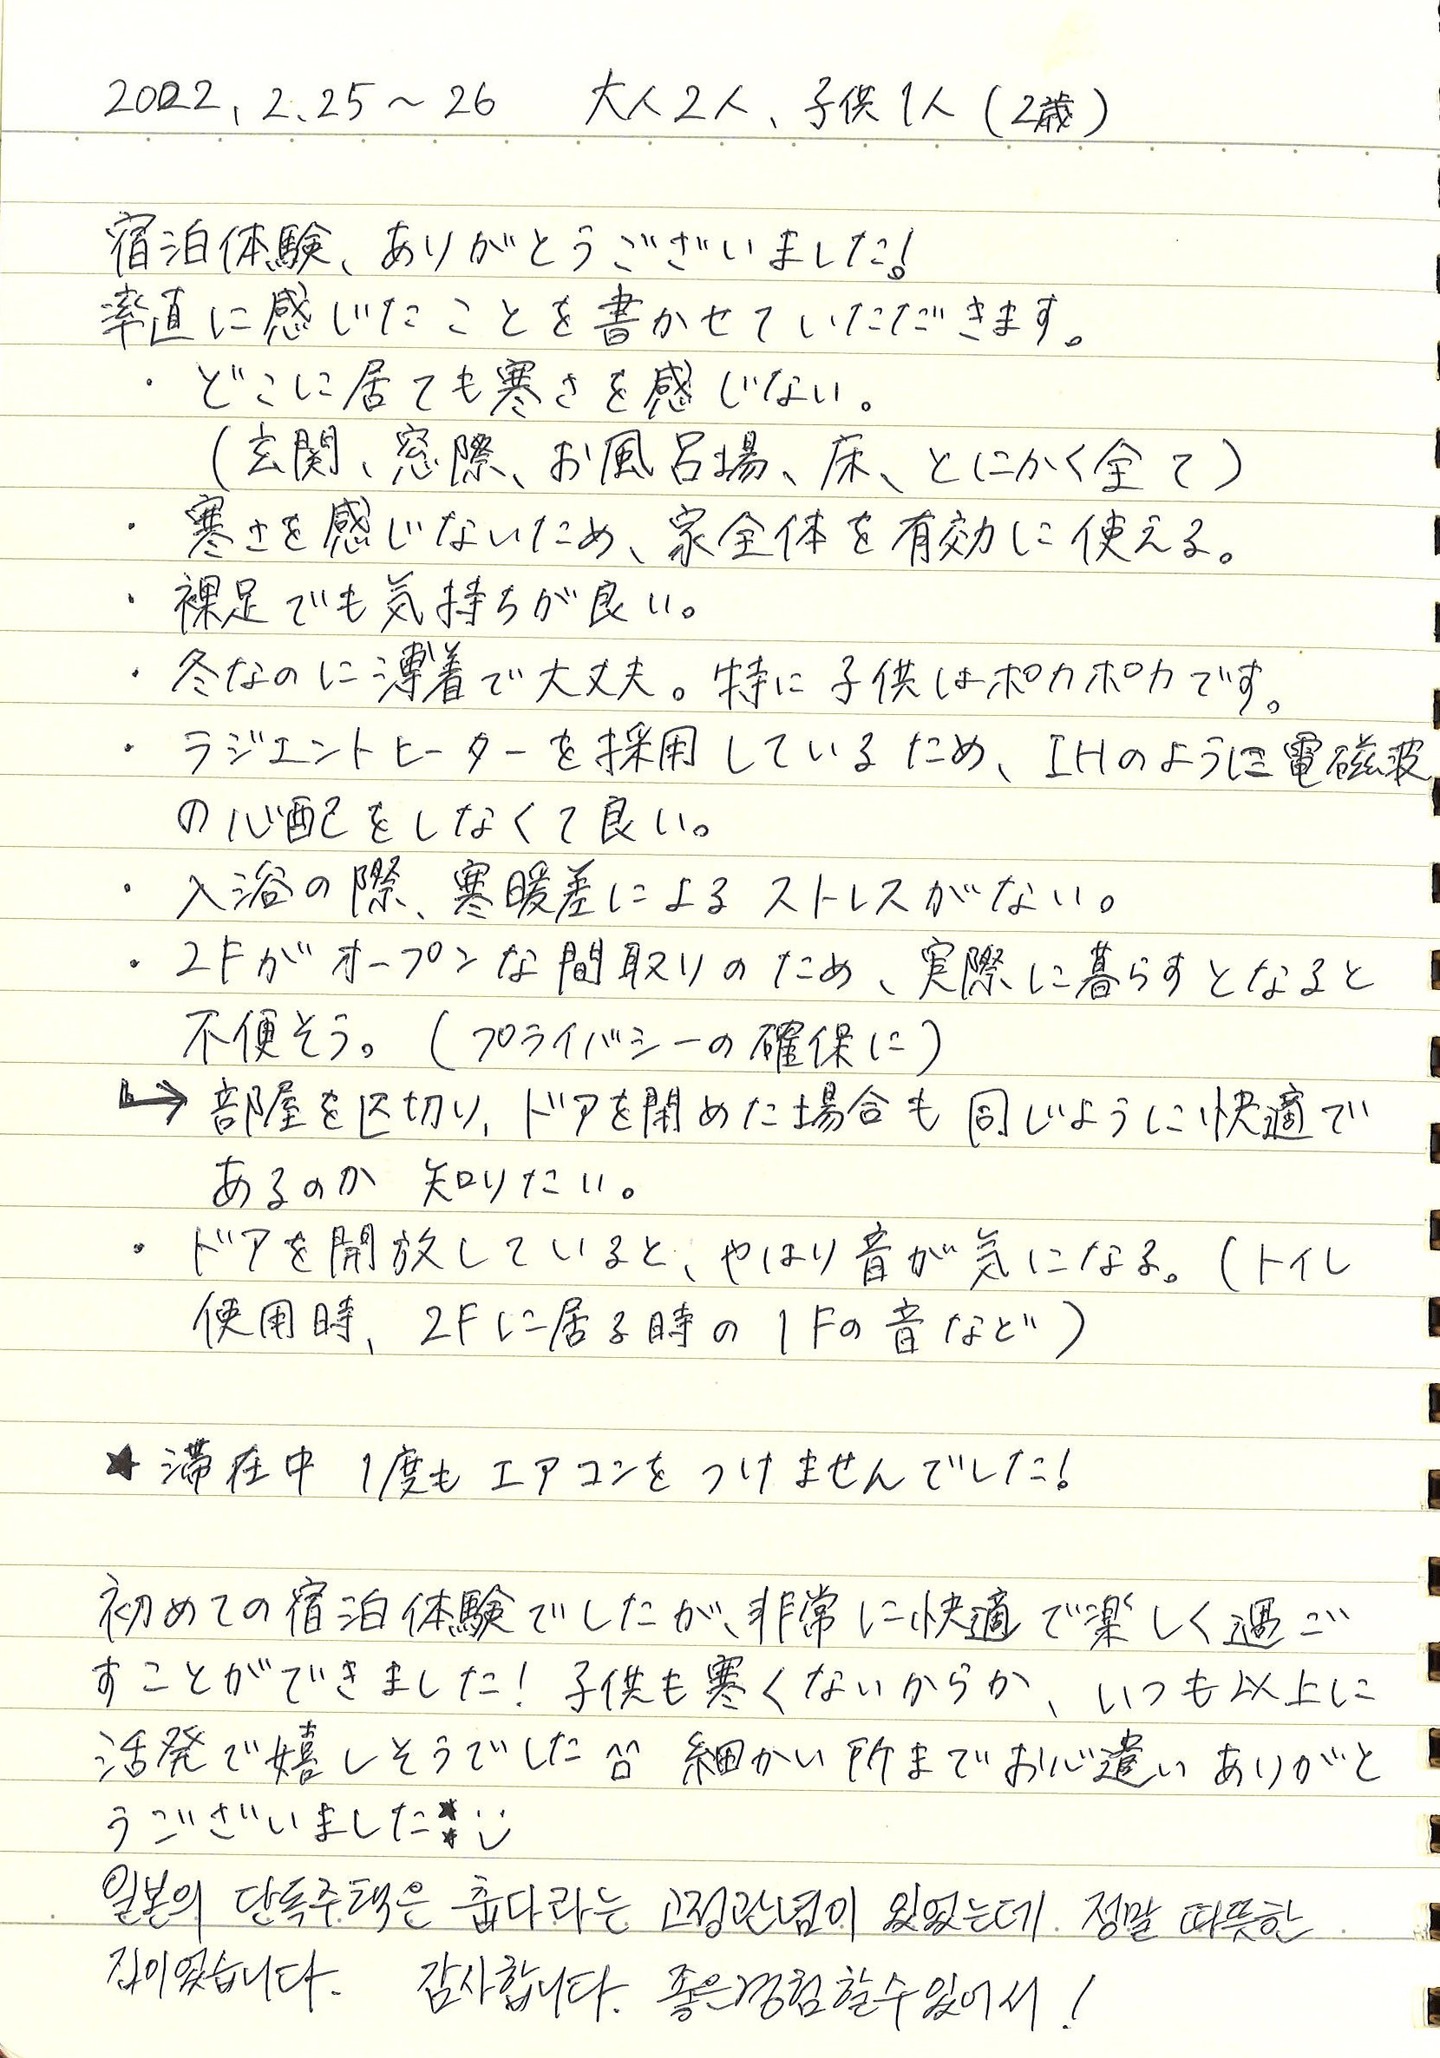 2022. 2. 25 ~ 26　大人2人、子供1人（2歳）
宿泊体験、ありがとうございました!
率直に感じたことを書かせていただきます。
・どこに居ても寒さを感じない。
（玄関、窓際、お風呂場、床、とにかく全て）
・寒さを感じないため、家全体を有効に使える。
・裸足でも気持ちが良い。
・冬なのに薄着で大丈夫。特に子供はポカポカです。
・ラジエントヒーターを採用しているため、IHのように電磁波
の心配をしなくて良い。
・入浴の際、寒暖差によるストレスがない。
・2Fがオープンな間取りのため、実際に暮らすとなると
不便そう。（プライバシーの確保に）
↳ 部屋を区切り、ドアを閉めた場合も同じように快適で
あるのか 知りたい。
・ドアを開放していると、やはり音が気になる。（トイレ
使用時、2Fに居る時の1Fの音など）
★滞在中 1度もエアコンをつけませんでした!
初めての宿泊体験でしたが、非常に快適で楽しく過ご
すことができました! 子供も寒くないからか、いつも以上に
活発で嬉しそうでした^^ 細かい所までお心遣いありがと
うございました
일본의 단독주택은 춥다라는 고정관념이 있었는데 정말 따뜻한
집이였습니다. 감사합니다. 좋은경험할수있어서!